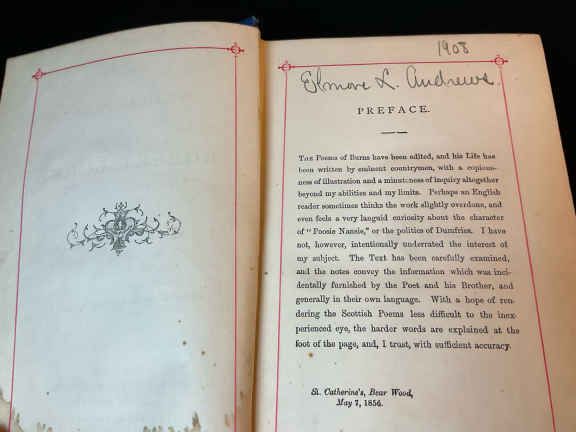 1908
Elmore L. Andrews.
PREFACE.
The Poems of Burns have been edited, and his Life has
been written by eminent countrymen, with a copious-
ness of illustration and a minuteness of inquiry altogether
beyond my abilities and my limits. Perhaps an English
reader sometimes thinks the work slightly overdone, and
even feels a very languid curiosity about the character
of "Poosie Nansie," or the politics of Dumfries. I have
not, however, intentionally underrated the interest of
my subject. The Text has been carefully examined,
and the notes convey the information which was inci-
dentally furnished by the Poet and his Brother, and
generally in their own language. With a hope of ren-
dering the Scottish Poems less difficult to the inex-
perienced eye, the harder words are explained at the
foot of the page, and, I trust, with sufficient accuracy.
St. Catherine's, Bear Wood,
May 7, 1856.